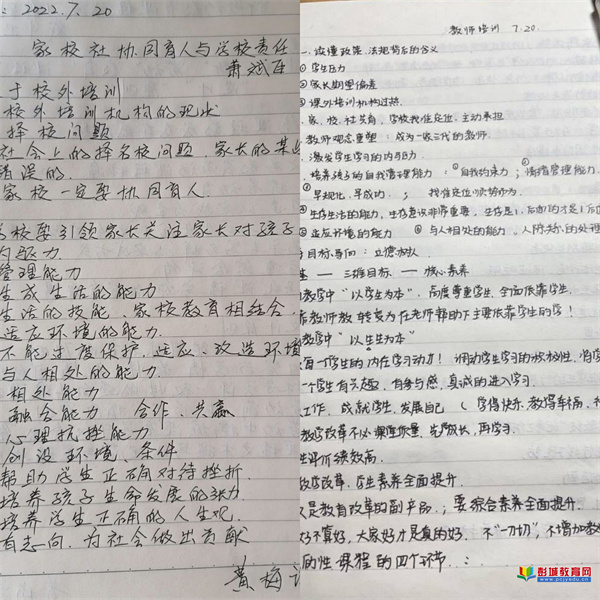 : 2022.7.20
家校社协同育人与学校责任
于校外培训
校外培训机构的现状
择校问题
社会上的择名校问题.家长的某些
错误的.
家校一定要协同育人.
学校要引领家长关注家长对孩子
内驱力
管理能力
生成生活的能力
生活的技能、家校教育相结合,
适应环境的能力.
不能过度保护,适应、改造环境
与人相处的能力.
相处能力
融合能力 合作,共赢
心理抗挫能力
创设环境、条件
帮助学生正确对待挫折.
培养孩子生命发展的张力
培养学生正确的人生观.
有志向,为社会做出贡献
黄梅
教师培训 7.20.
一.读懂政策.法规背后的含义
①学生压力
②家长期望偏差
③课外培训机构过热.
家、校、社共育,学校找准定位,主动承担
教师观念重塑:成为一家三代的教师.
激发学生学习的内驱力.
培养孩子的自我管理能力:①自我约束力;情绪管理能力.
②早规化,早成功;找准定位,顺势而为.
③生存生活的能力,生存意识非常重要,
适应环境的能力 ④与人相处的能力.人际关系的处理
目标导向:立德树人
基 — 三维目标 — 核心素养
教学中“以学生为本”,高度尊重学生,全面依靠学生.
靠教师教转变为在老师帮助下主要依靠学生的学!
教学中“以生生为本”
每一个学生的内在学习动力!调动学生学习的积极性,
个学生有兴趣,有参与感,真诚的进入学习.
工作,成就学生,发展自己(学得快乐,教得幸福,
教学改革不必课课质量,先成长,再学习.
生评价须高.
改革,学生素养全面提升
是教育改革的副产品.;要综合素养全面提升.
好不算好,大家好才是真的好.不“一刀切”,不增加
性课程的四个环节.:
彭城教育网
www.pcjyw.com